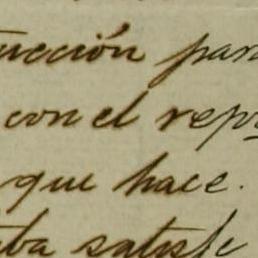 ucción par
con el rep
que hace.
ba satisfe